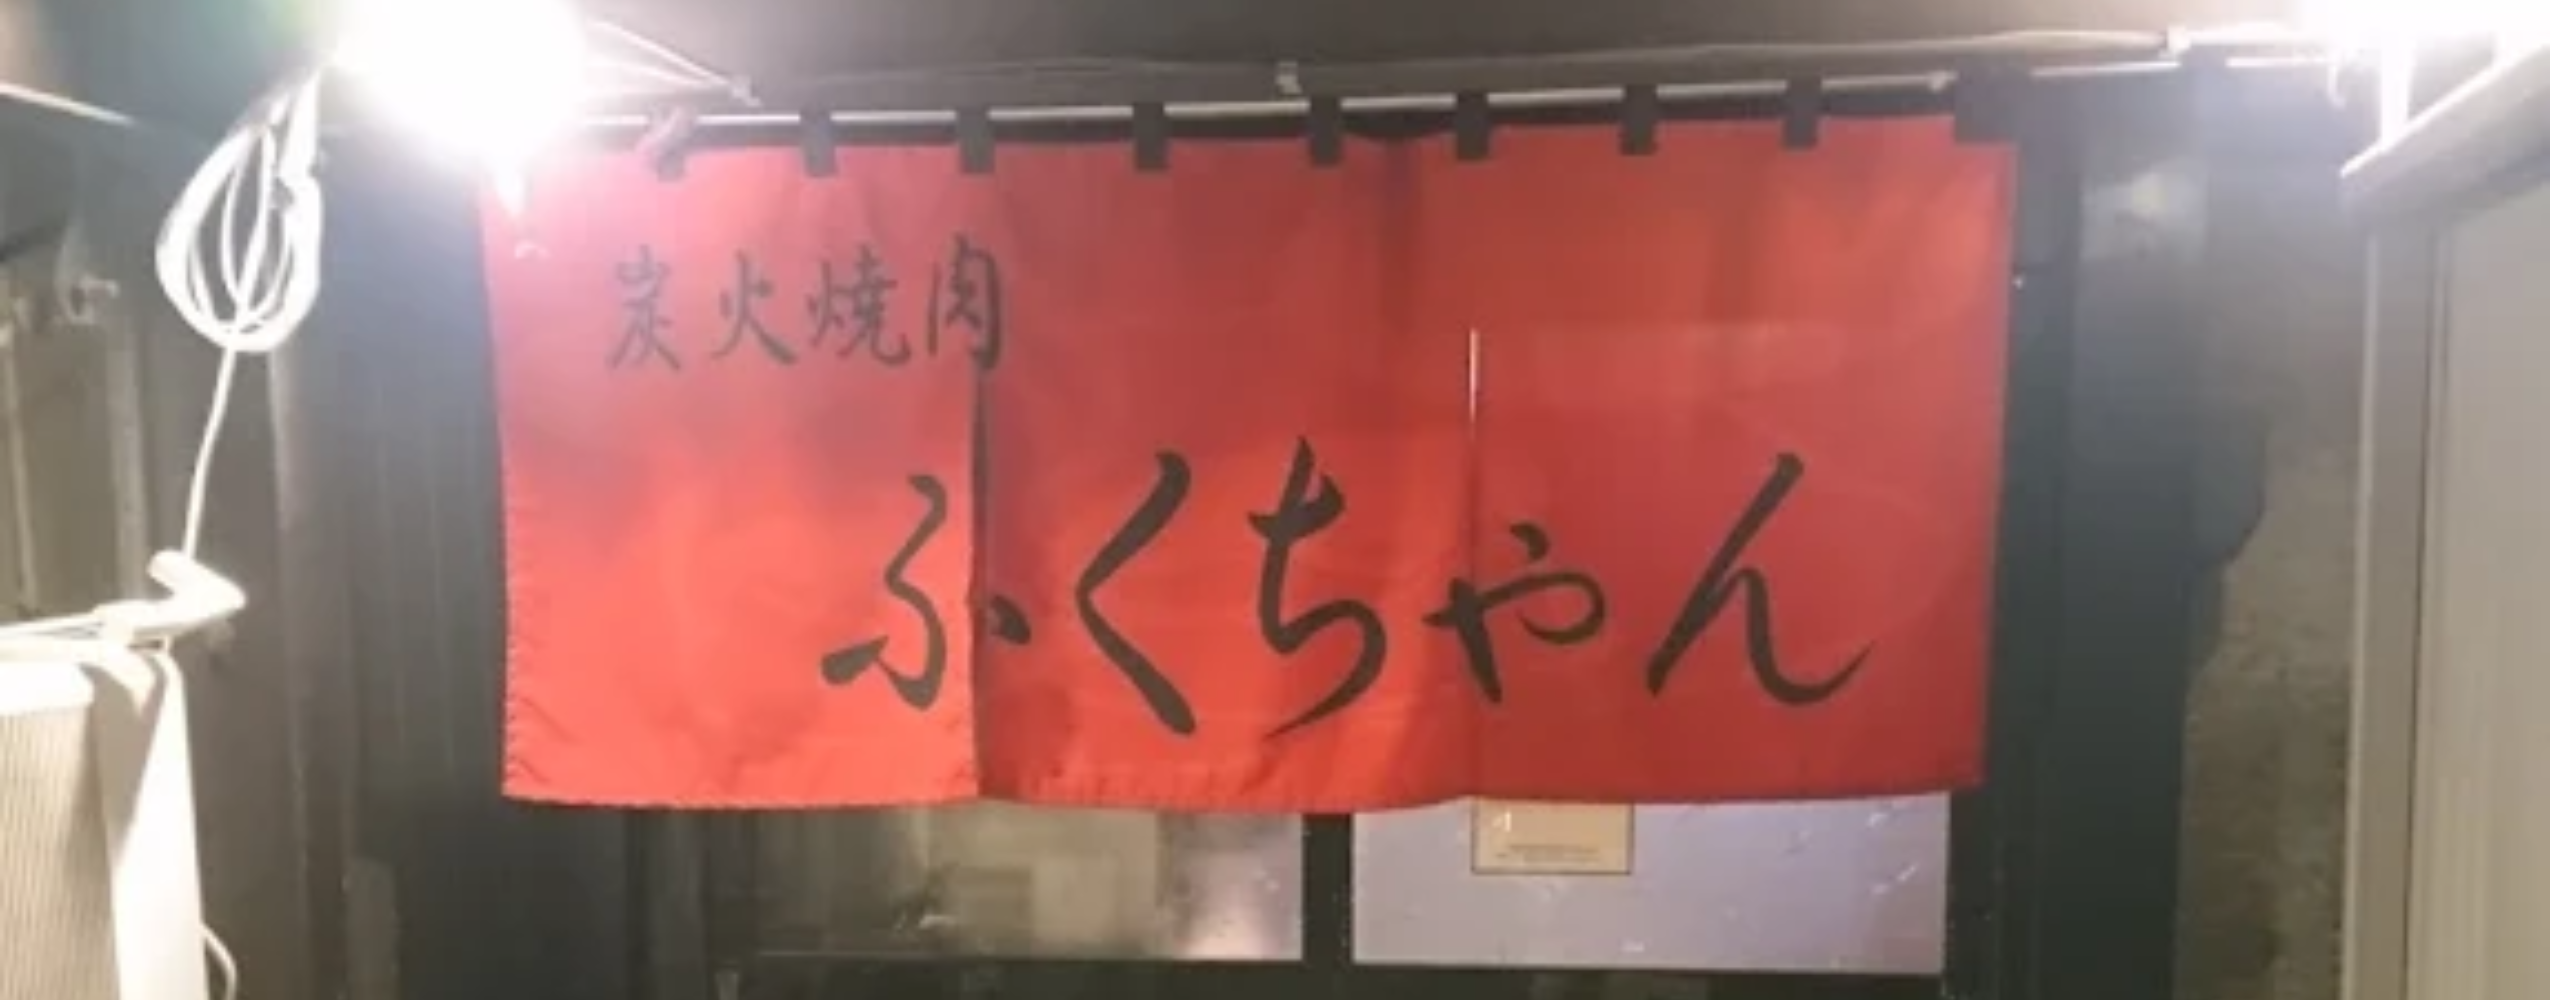 炭火燒肉
ふくちゃん